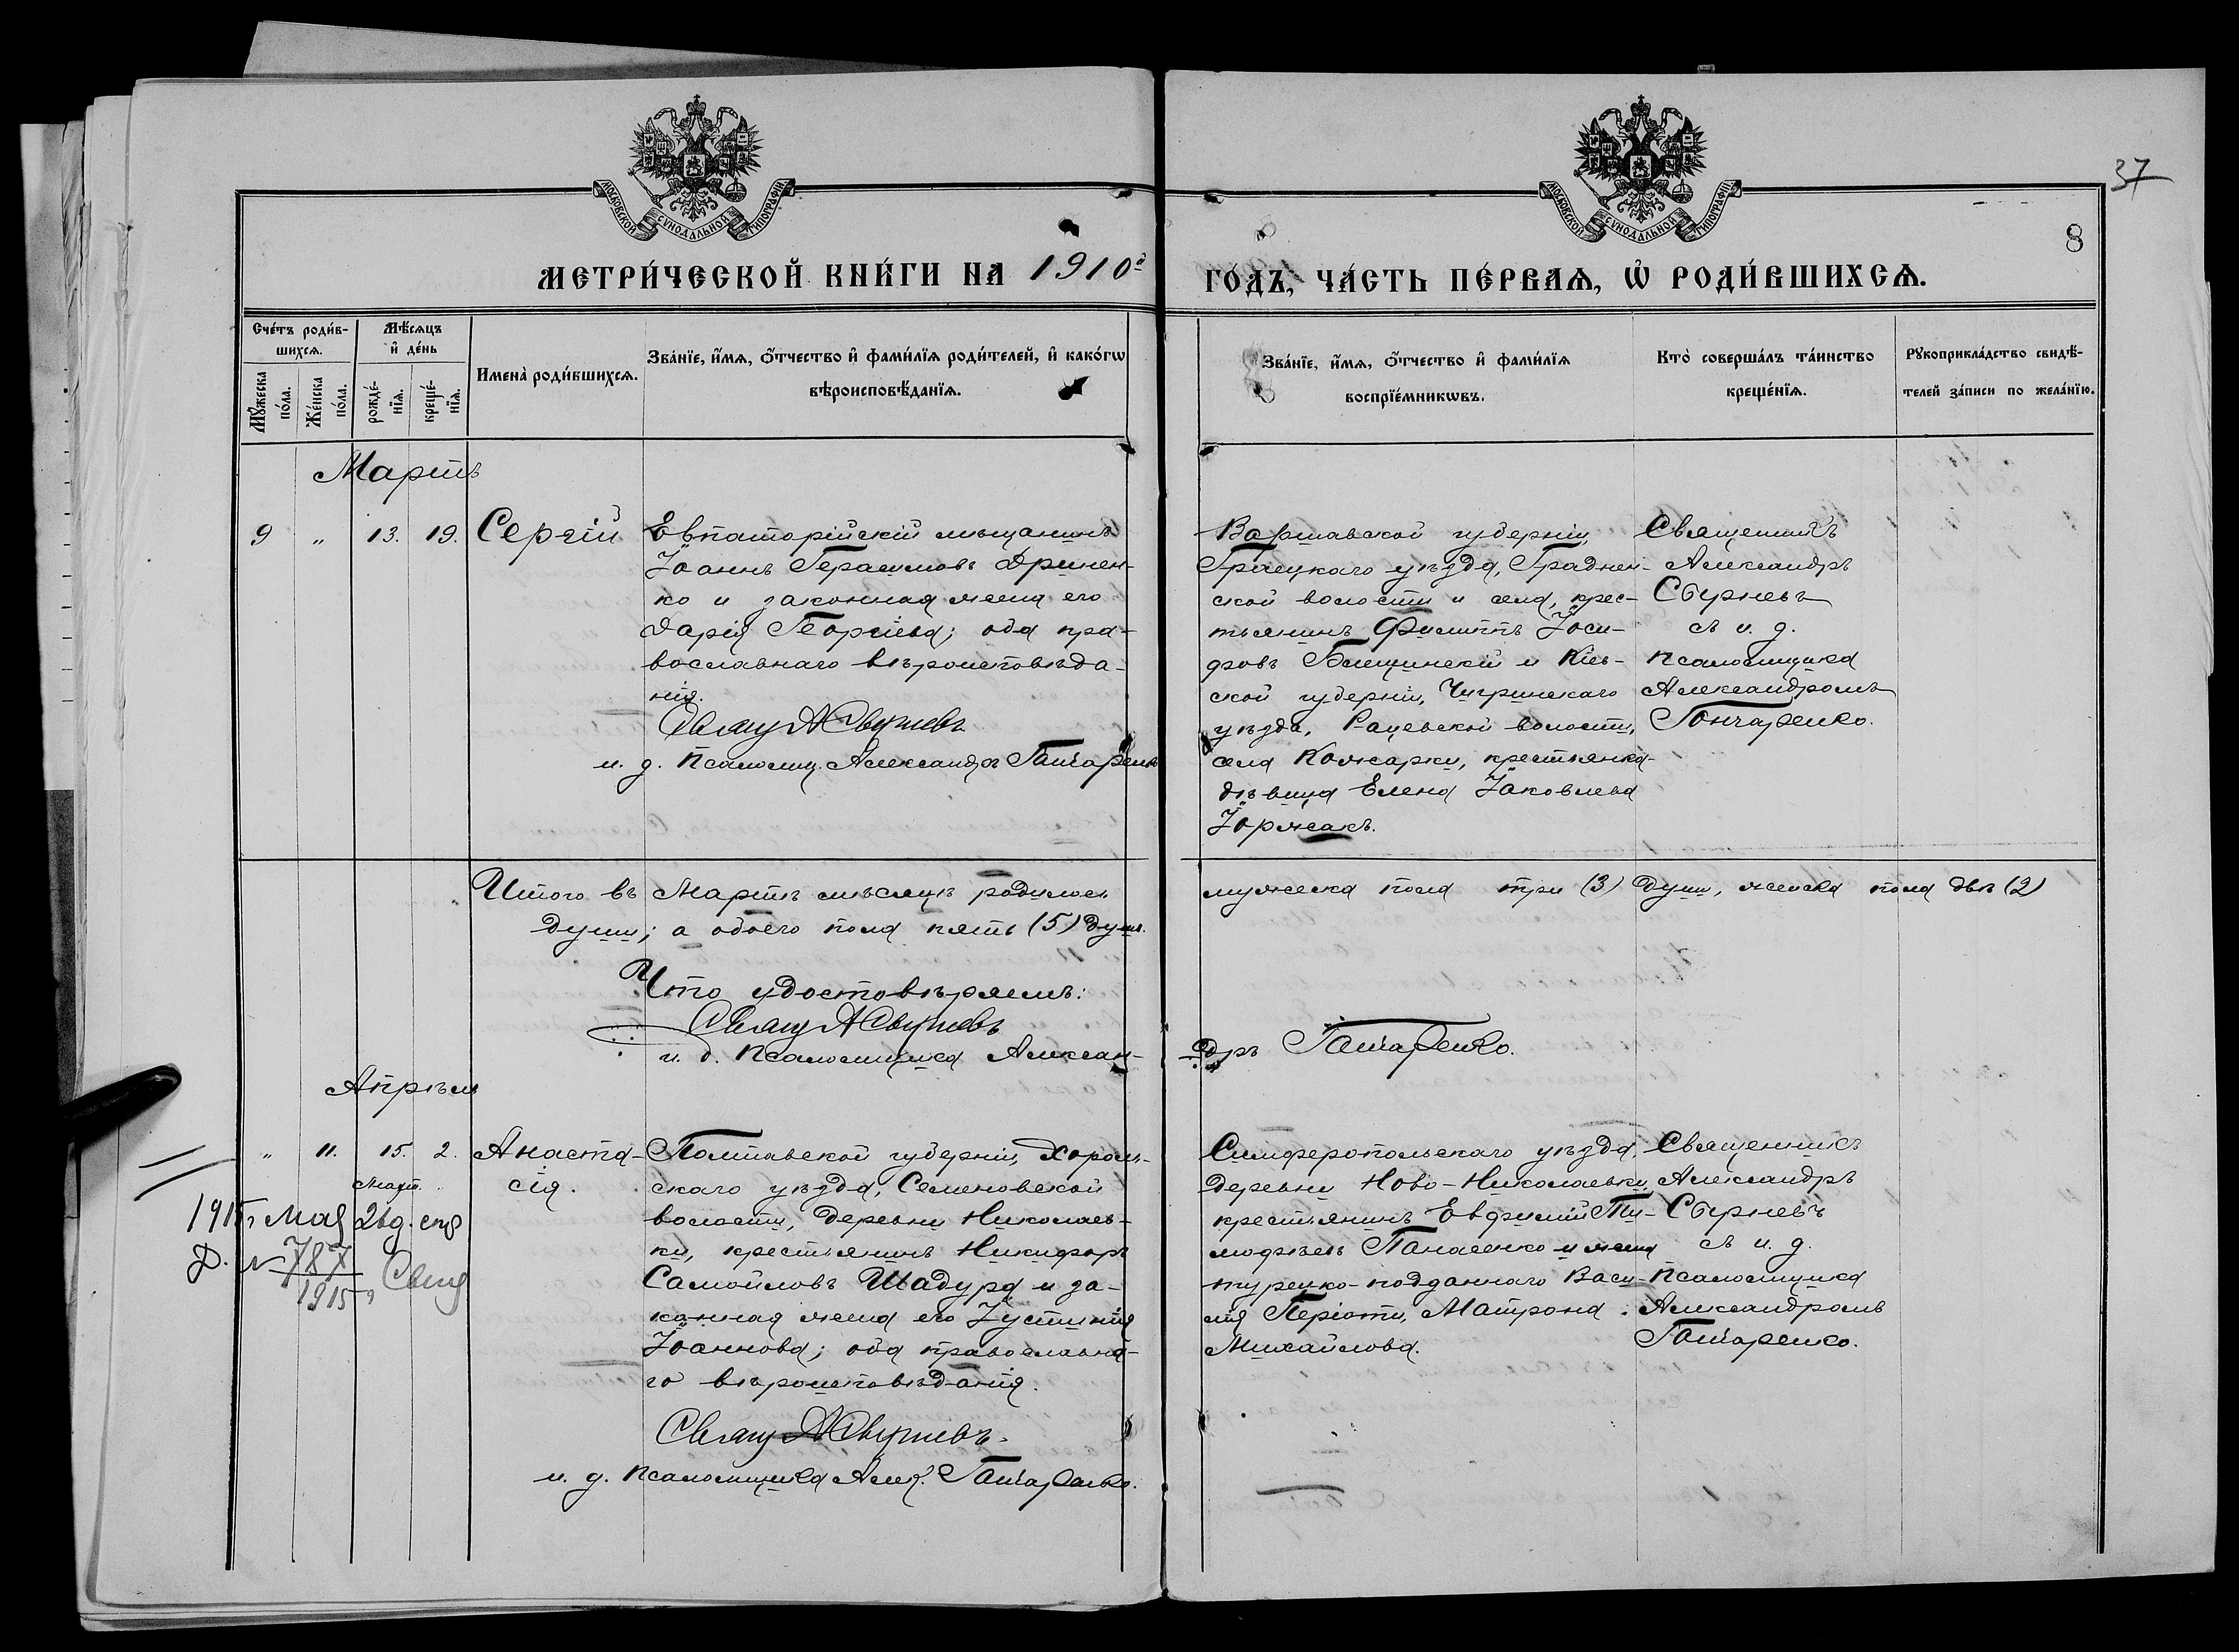 37
8
МОСКОВСКОЙ СѴНОДАЛЬНОЙ ТИПОГРАФІИ
МОСКОВСКОЙ СѴНОДАЛЬНОЙ ТИПОГРАФІИ
МЕТРИ́ЧЕСКОЙ КНИ́ГИ НА 1910й
ГО́ДЪ, ЧА́СТЬ ПЕ́РВАѦ, Ѡ҆ РОДИ́ВШИХСѦ.
Сче́тъ роди́в-
шихсѧ.
Мꙋ́жеска
по́ла.
Же́нска
по́ла.
Мѣ́сѧцъ
и҆ де́нь
рожде́-
нїѧ.
креще́-
нїѧ.
Имена̀ роди́вшихсѧ.
Зва́нїе, и҆́мѧ, ѻ҆́тчество и҆ фами́лїѧ роди́телей, и҆ како́гѡ
вѣроисповѣ́данїѧ.
Зва́нїе, и҆́мѧ, ѻ҆́тчество и҆ фами́лїѧ
воспрїе́мникѡвъ.
Кто̀ соверша́лъ та́инство
креще́нїѧ.
Рꙋкоприкла́дство свидѣ́-
телей за́писи по жела́нїю.
Мартъ
9 " 13. 19. Сергій
Евпаторійскій мѣщанинъ
Іоаннъ Герасимовъ Дринен-
ко и законная жена его
Дарія Георгіева; оба пра-
вославнаго вѣроисповѣда-
нія.
Свящ А Свирневъ
и. д. Псаломщ. Александръ Гончаренко
Варшавской губерніи,
Гроецкаго уѣзда,
ской волости и села, крес-
тьянинъ Филиппъ Іоси-
фовъ и Кіев-
ской губерніи, Чигринскаго
уѣзда, Рацевской волости,
села Кожарки, крестьянка-
дѣвица Елена Іаковлева
Священникъ
Александръ
Свирневъ
съ и. д.
Псаломщика
Александромъ
Гончаренко.
Итого въ Мартѣ мѣсяцѣ родилось
мужеска пола три (3) души, женска пола двѣ (2)
души; а обоего пола пять (5) душъ.
Что удостовѣряемъ:
Свящ А Свирневъ
и. д. Псаломщика Алексан-
дръ Гончаренко.
Апрѣль
" 11. 15. 2. Анаста-
Март.
сія.
1915 г Мая 21 д.
Д. № 787
1915 г
Полтавской губерніи, Хороль-
скаго уѣзда, Семеновской
волости, деревни Николаев-
ки, крестьянинъ Никифоръ
Самойловъ Шадура и за-
конная жена его Іустинія
Іоаннова; оба православна-
го вѣроисповѣданія.
Свящ А Свирневъ.
и. д. Псаломщика Алек. Гончаренко.
Симферопольскаго уѣзда,
деревни Ново-Николаевки,
крестьянинъ Евфимій Ти-
мофѣевъ Панасенко и жена
турецко-подданнаго Васи-
лія Періоти, Матрона
Михайлова.
Священникъ
Александръ
Свирневъ
съ и. д.
Псаломщика
Александромъ
Гончаренко.